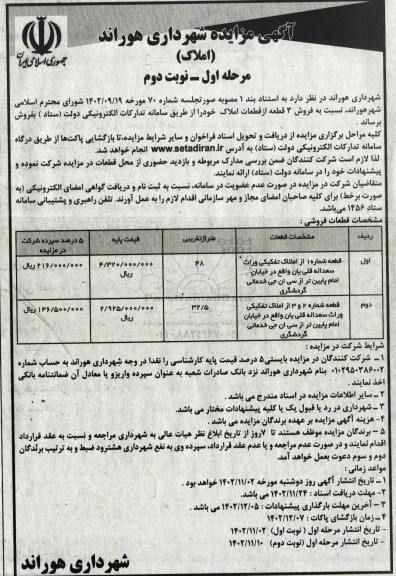 آگهی مزایده شهرداری هوراند
(املاک)
مرحله اول – نوبت دوم
جمهوری اسلامی ایران
شهرداری هوراند در نظر دارد به استناد بند ۱ مصوبه صورتجلسه شماره ۷۰ مورخه ۱۴۰۲/۰۹/۱۹ شورای محترم اسلامی
شهر هوراند، نسبت به فروش ۳ قطعه از قطعات املاک خود را از طریق سامانه تدارکات الکترونیکی دولت (ستاد) بفروش
برساند.
کلیه مراحل برگزاری مزایده از دریافت و تحویل اسناد فراخوان و سایر شرایط مزایده، تا بازگشایی پاکت‌ها از طریق درگاه
سامانه تدارکات الکترونیکی دولت (ستاد) به آدرس www.setadiran.ir انجام خواهد شد.
لذا لازم است شرکت کنندگان ضمن بررسی مدارک مربوطه و بازدید حضوری از محل قطعات در مزایده شرکت نموده و
پیشنهادات خود را در سامانه دولت (ستاد) ارائه نمایند.
متقاضیان شرکت در مزایده در صورت عدم عضویت در سامانه، نسبت به ثبت نام و دریافت گواهی امضای الکترونیکی (به
صورت برخط) برای کلیه صاحبان امضای مجاز و مهر سازمانی اقدام لازم را به عمل آورند. تلفن راهبری و پشتیبانی سامانه
ستاد ۱۴۵۶ می‌باشد.
مشخصات قطعات فروشی :
ردیف مشخصات قطعات متراژ تقریبی قیمت پایه ۵ درصد سپرده شرکت در مزایده
اول قطعه شماره ۱ از املاک تفکیکی وراث سعداله قلی یان واقع در خیابان امام پایین تر از سی ان جی خدماتی گردشگری ۴۸ ۴/۳۲۰/۰۰۰/۰۰۰ ریال ۲۱۶/۰۰۰/۰۰۰ ریال
دوم قطعه شماره ۲ و ۳ از املاک تفکیکی وراث سعداله قلی یان واقع در خیابان امام پایین تر از سی ان جی خدماتی گردشگری ۳۲/۵ ۲/۹۲۵/۰۰۰/۰۰۰ ریال ۱۴۶/۵۰۰/۰۰۰ ریال
شرایط شرکت در مزایده :
۱ – شرکت کنندگان در مزایده بایستی ۵ درصد قیمت پایه کارشناسی را نقدا در وجه شهرداری هوراند به حساب شماره
۰۱۰۲۹۵۰۳۸۶۰۰۲ بنام شهرداری هوراند نزد بانک صادرات شعبه به عنوان سپرده واریز و یا معادل آن ضمانتنامه بانکی
اخذ نمایند.
۲ – سایر اطلاعات مزایده در اسناد مندرج می باشد.
۳ – شهرداری در رد یا قبول یک یا کلیه پیشنهادات مختار می باشد.
۴– هزینه آگهی مزایده بر عهده برندگان مزایده می باشد.
۵ – برندگان مزایده موظف هستند تا ۷ روز از تاریخ ابلاغ نظر هیات عالی به شهرداری مراجعه و نسبت به عقد قرارداد
اقدام نمایند و در صورت عدم مراجعه و یا عدم عقد قرارداد، سپرده وی به نفع شهرداری هشترود ضبط و به ترتیب برندگان
دوم و سوم دعوت بعمل خواهد آمد.
مواعد زمانی :
۱ – تاریخ انتشار آگهی روز دوشنبه مورخه ۱۴۰۲/۱۱/۰۲ خواهد بود.
۲– مهلت دریافت اسناد : ۱۴۰۲/۱۱/۲۴ می باشد.
۳ – آخرین مهلت بارگذاری پیشنهادات : ۱۴۰۲/۱۲/۰۵ می باشد.
۴ – زمان بازگشای پاکات : ۱۴۰۲/۱۲/۰۷
– تاریخ انتشار مرحله اول ( نوبت اول) ۱۴۰۲/۱۱/۰۲
– تاریخ انتشار مرحله اول (نوبت دوم) ۱۴۰۲/۱۱/۱۰
شهرداری هوراند